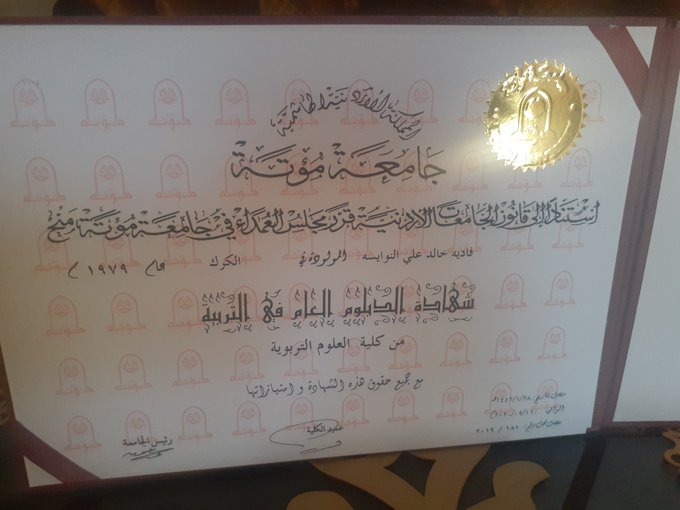 المملكة الأردنية الهاشمية
جامعة مؤتة
استناداً إلى قانون الجامعات الأردنية قرر مجلس العمداء في جامعة مؤتة منح
فاديه خالد علي النوايسه المولودة في الكرك عام ١٩٧٩ م
شهادة الدبلوم العام في التربية
من كلية العلوم التربوية
مع جميع حقوق هذه الشهادة و امتيازاتها
رئيس الجامعة
عميد الكلية
مؤتة